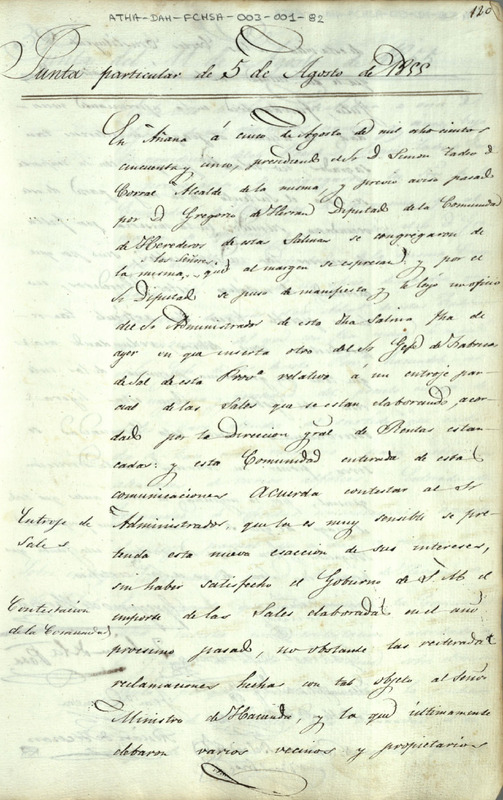 ATHA-DAH-FCHSA-003-001-82
120
Junta particular de 5 de Agosto de 1855
En Añana á cinco de Agosto de mil ocho cientos
cincuenta y cinco, presidiendo el Sr. D. Simon Tadeo de
Corral Alcalde de la misma, y previo aviso pasado
por D. Gregorio de Herran Diputado de la Comunidad
de Herederos de estas Salinas se congregaron de
los Señores
la misma, que al margen se espresan, y por el
Sr. Diputado se puso de manifiesto y se leyó un oficio
del Sr. Administrador de esta dha Salina fha de
ayer en que inserta otro del Sr. Gefe de Fabrica
de Sal de esta Prova. relativo á un entroje par
cial de las Sales que se están elaborando, acor
dado por la Direccion gral de Rentas estan
cadas: y esta Comunidad enterada de estas
comunicaciones Acuerda contestar al Sr
Entroje de
Sales
Administrador, que la es muy sensible se pre
tenda esta nueva esaccion de sus intereses,
sin haber satisfecho el Gobierno de S. M. el
Contestacion
de la Comunidad.
importe de las Sales elaboradas en el año
procsimo pasado, no obstante las reiteradas
reclamaciones hechas con tal objeto al Señor
Ministro de Hacienda, y la que últimamente
elebaron varios vecinos y propietarios